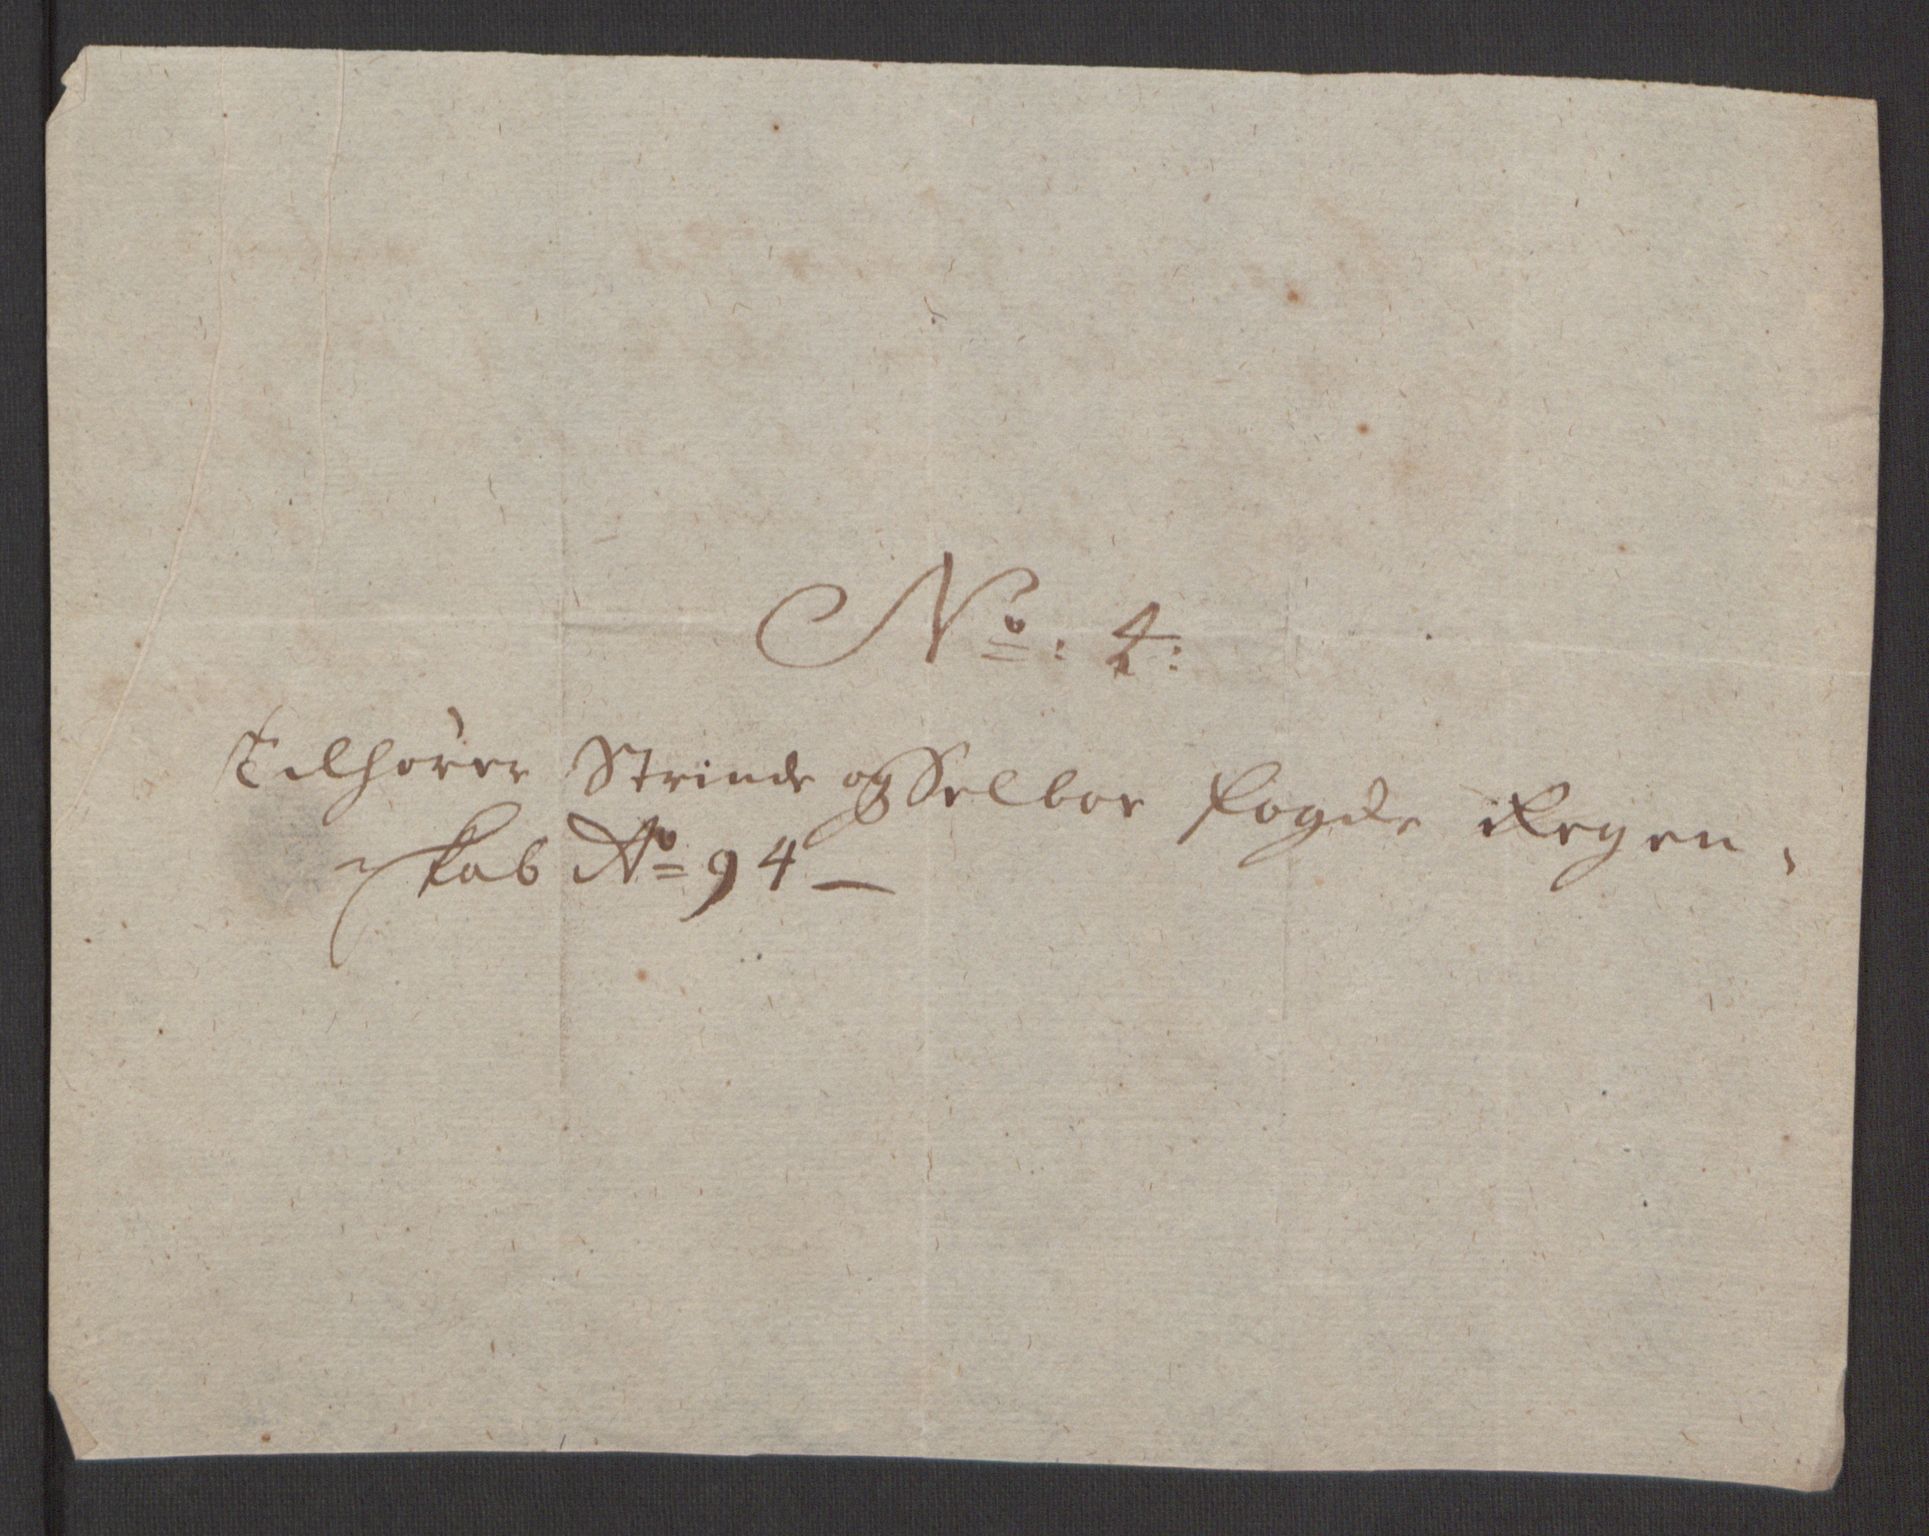 No: 4:
Tilhörer Strinde og Selboe fogde Regen,
skab Ao 94 —